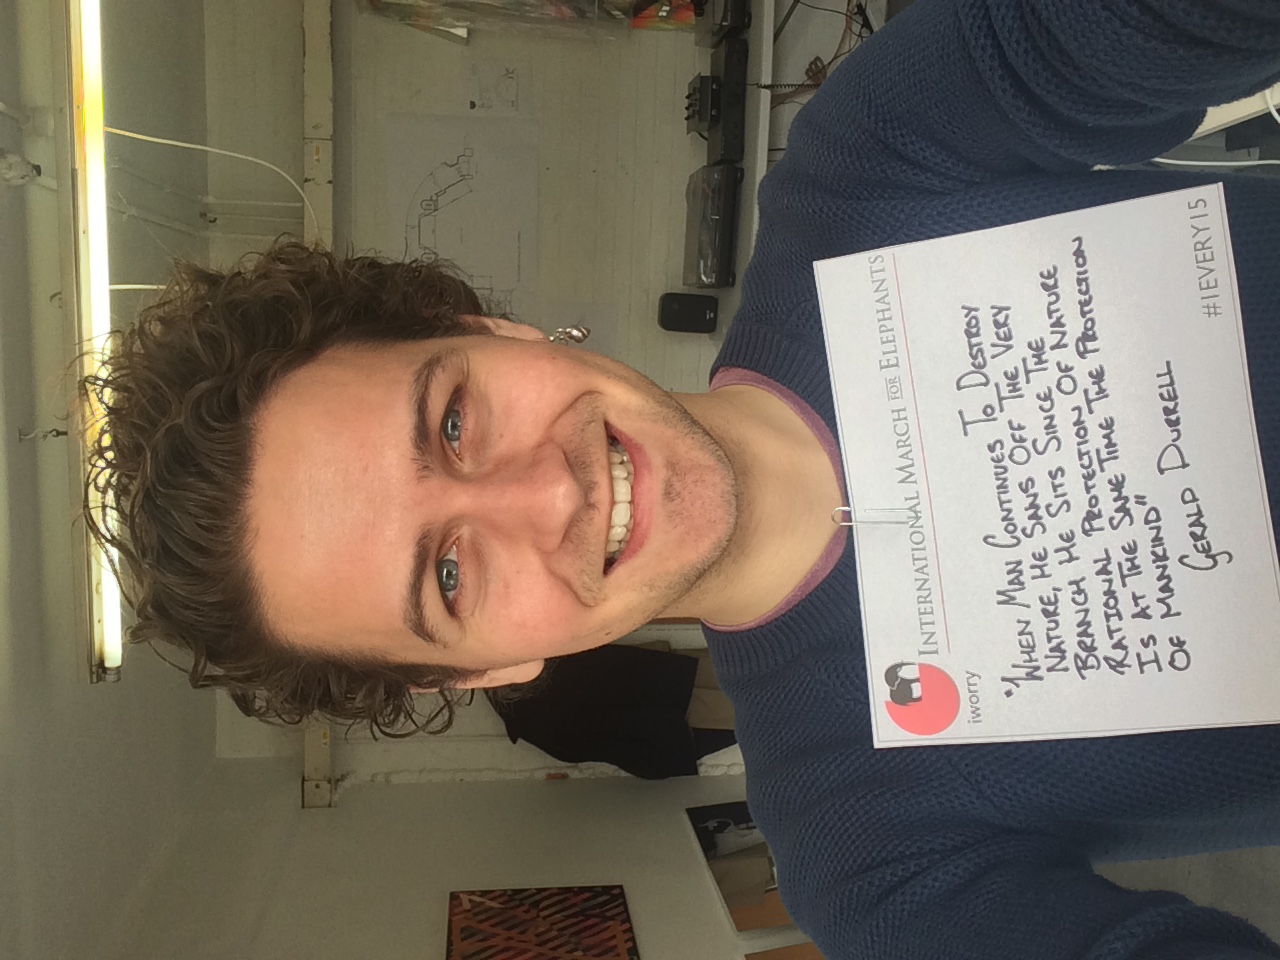 INTERNATIONAL MARCH FOR ELEPHANTS
iworry
"WHEN MAN CONTINUES TO DESTROY
NATURE, HE SAWS OFF THE VERY
BRANCH HE SITS SINCE THE
RATIONAL PROTECTION OF NATURE
IS AT THE SAME TIME THE PROTECTION
OF MANKIND"
GERALD DURRELL
#1EVERY15